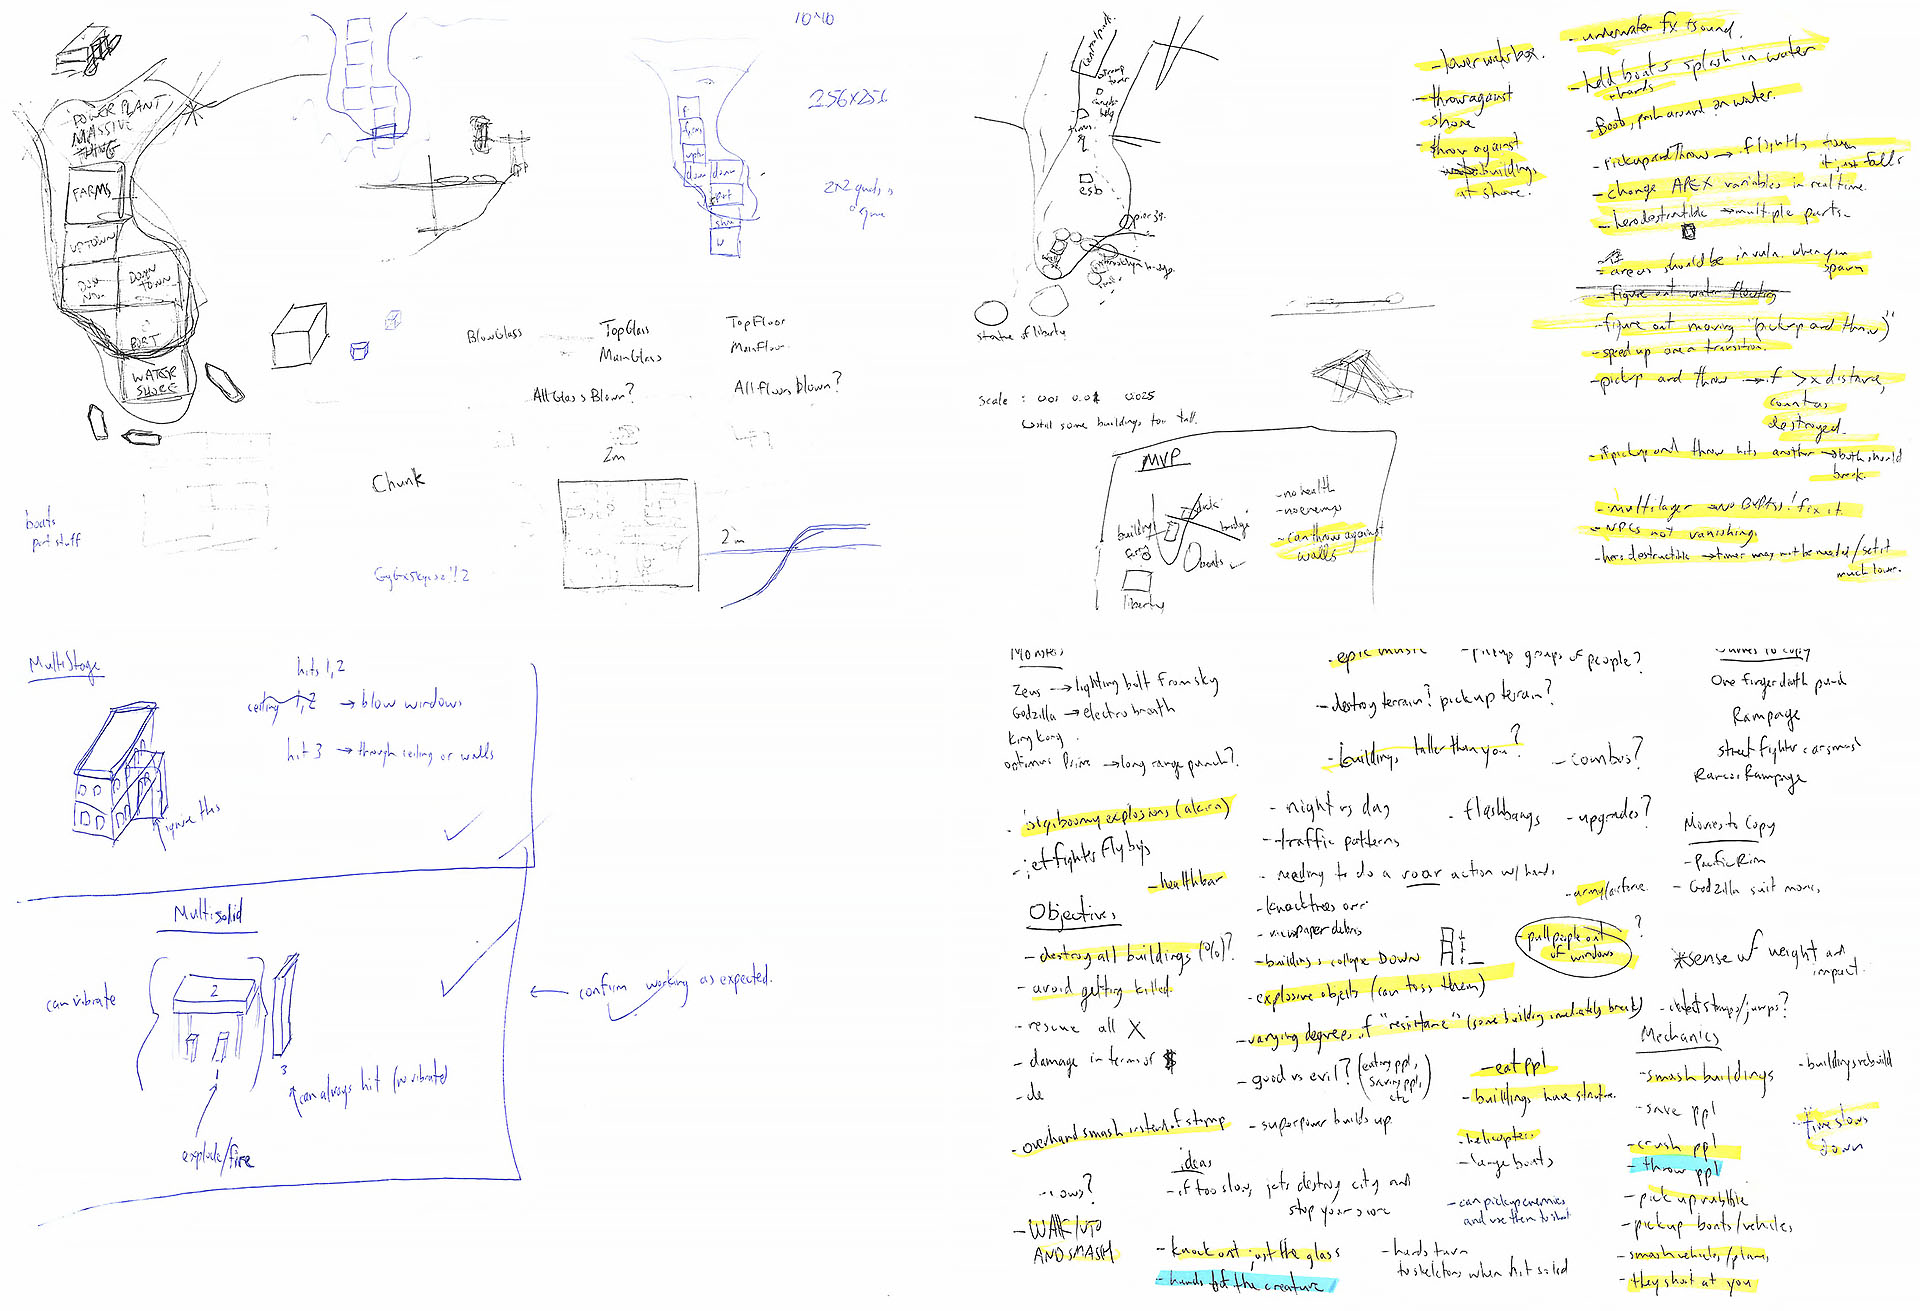 POWER PLANT
MASSIVE
THING
FARMS
UPTOWN
DOWN
TOWN
PORT
WATER
SHORE
boats
port stuff
10x10
256x256
2x2 quads
BlowGlass
TopGlass
MainGlass
TopFloor
MainFloor
AllGlassBlown?
AllFloorsBlown?
Chunk
2m
2m
central park
esb
pier 39.
brooklyn bridge
statue of liberty
scale : 0.01 0.02 0.025
still some buildings too tall.
MVP
building
bridge
boats
liberty
-no health
-no enemys
-can throw against
walls
-lower waterbox.
-throw against
shore
-throw against
buildings
at shore.
-underwater fx & sound.
-held boats splash in water
+hands
-Boats, push around on water.
-pickup and throw → if
it just falls
-change APEX variables in real time.
-hero destructible → multiple parts-
-areas should be invuln. when you
spawn
-figure out water floating
-figure out moving "pickup and throw"
-speed up area transition.
-pickup and throw → if >x distance,
count as
destroyed.
-if pickup and throw hits another → both should
break.
-multilayer → no
! fix it.
-NPCs not vanishing.
-hero destructible → timer may not be needed/set it
much lower.
MultiStage
hits 1,2
ceiling 1,2 → blow windows
hit 3 → through ceiling or walls
ignore this
Multisolid
can vibrate
2
3
can always hit (no vibrate)
explode/fire
← confirm working as expected.
Monsters
Zeus → lighting bolt from sky
Godzilla → electro breath
King Kong
Optimus Prime → long range punch?
-epic music
-pickup groups of people?
-destroy terrain? pick up terrain?
-buildings taller than you?
-combos?
Games to copy
One finger death punch
Rampage
street fighter car smash
Rampage
-big boomy explosions (akira)
-jet fighter fly bys
-health bar
-night vs day
-traffic patterns
-flashbangs
-upgrades?
Movies to Copy
-Pacific Rim
-Godzilla suit movies
-needing to do a roar action w/ hands
-knock trees over
-newspaper debris
-buildings collapse DOWN
-pull people out
of windows
?
*sense of weight and
impact.
Objectives
-destroy all buildings (%)?
-avoid getting killed.
-rescue all X
-damage in terms of $
-de
-overhand smash instead of stomp
-explosive objects (can toss them)
-varying degrees of "resistance" (some building immediately break)
-good vs evil? (eating ppl,
saving ppl,
etc)
-superpower builds up.
-eat ppl
-buildings have structure.
-helicopters
-large boats
-can pickup enemies
and use them to shoot
Mechanics
-smash buildings
-save ppl
-crush ppl
-throw ppl
-pick up rubble
-pickup boats/vehicles
-smash vehicles/planes
-they shoot at you
-buildings rebuild
-time slows
down
ideas
-if too slow, jets destroy city and
stop your score
-cows?
-WALK UP TO
AND SMASH
-knock out just the glass
-hands of the creature
-hands turn
to skeletons when hit solid